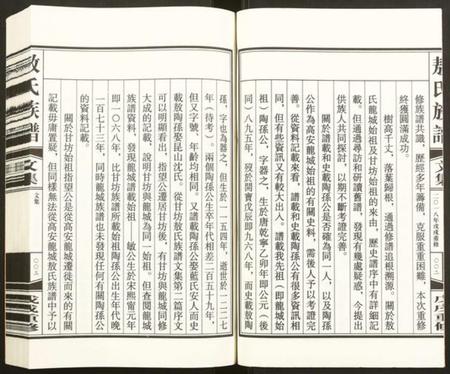 敖氏族譜
文集
二〇一八年戊戌重修
戊戌重修
修族譜共識,歷經多年籌備,克服重重困難,本次重修
終獲圓滿成功。
樹高千丈,落葉歸根,通過修譜追根溯源。關於敖
氏龍城始祖及甘坊始祖的來由,歷史譜序中有詳細記
載。但通過尋訪和研讀舊譜,發現有幾處疑惑,今提出
供族人共同探討,以期不斷考證完善。
關於譜載和史載陶孫公是否爲同一人,以及陶孫
公作為高安龍城始祖的有關史料,需後人予以考證完
善。從資料記載來看,譜載和史載陶孫公有很多資訊相
同,但有些資訊又有較大出入。譜載我先祖(即龍城始
祖)陶孫公,字器之,生於唐乾寧乙卯年即公元(後
同)八九五年,歿於開寶戊辰即九六八年,而史載敖陶
孫,字也為器之,但生於一一五四年,逝世於一二二七
年(待考)。兩個陶孫公生卒年代相差二百五十九年,
但又字號、年齡均相同。又譜載陶孫公娶藍氏安人而史
載敖陶孫娶昆山沈氏。從甘坊敖族譜文集第二篇序文
可以明顯看出,指望公遷居甘坊後,有甘坊與龍城同修
大成的記載,說明甘坊與龍城為同一始祖。但查閱龍城
族譜資料,發現龍城譜載始祖 敏公生於宋熙寧元年
即一〇六八年,比甘坊族譜所載始祖陶孫公出生年代晚
一百七十三年,同時龍城族譜也未發現任何有關陶孫公
的資料記載。
關於甘坊始祖指望公是從高安龍城遷徙而來的有關
記載毋庸置疑,但同樣無法從高安龍城敖氏族譜中予以
敖氏族譜
文集
文集
戊戌重修